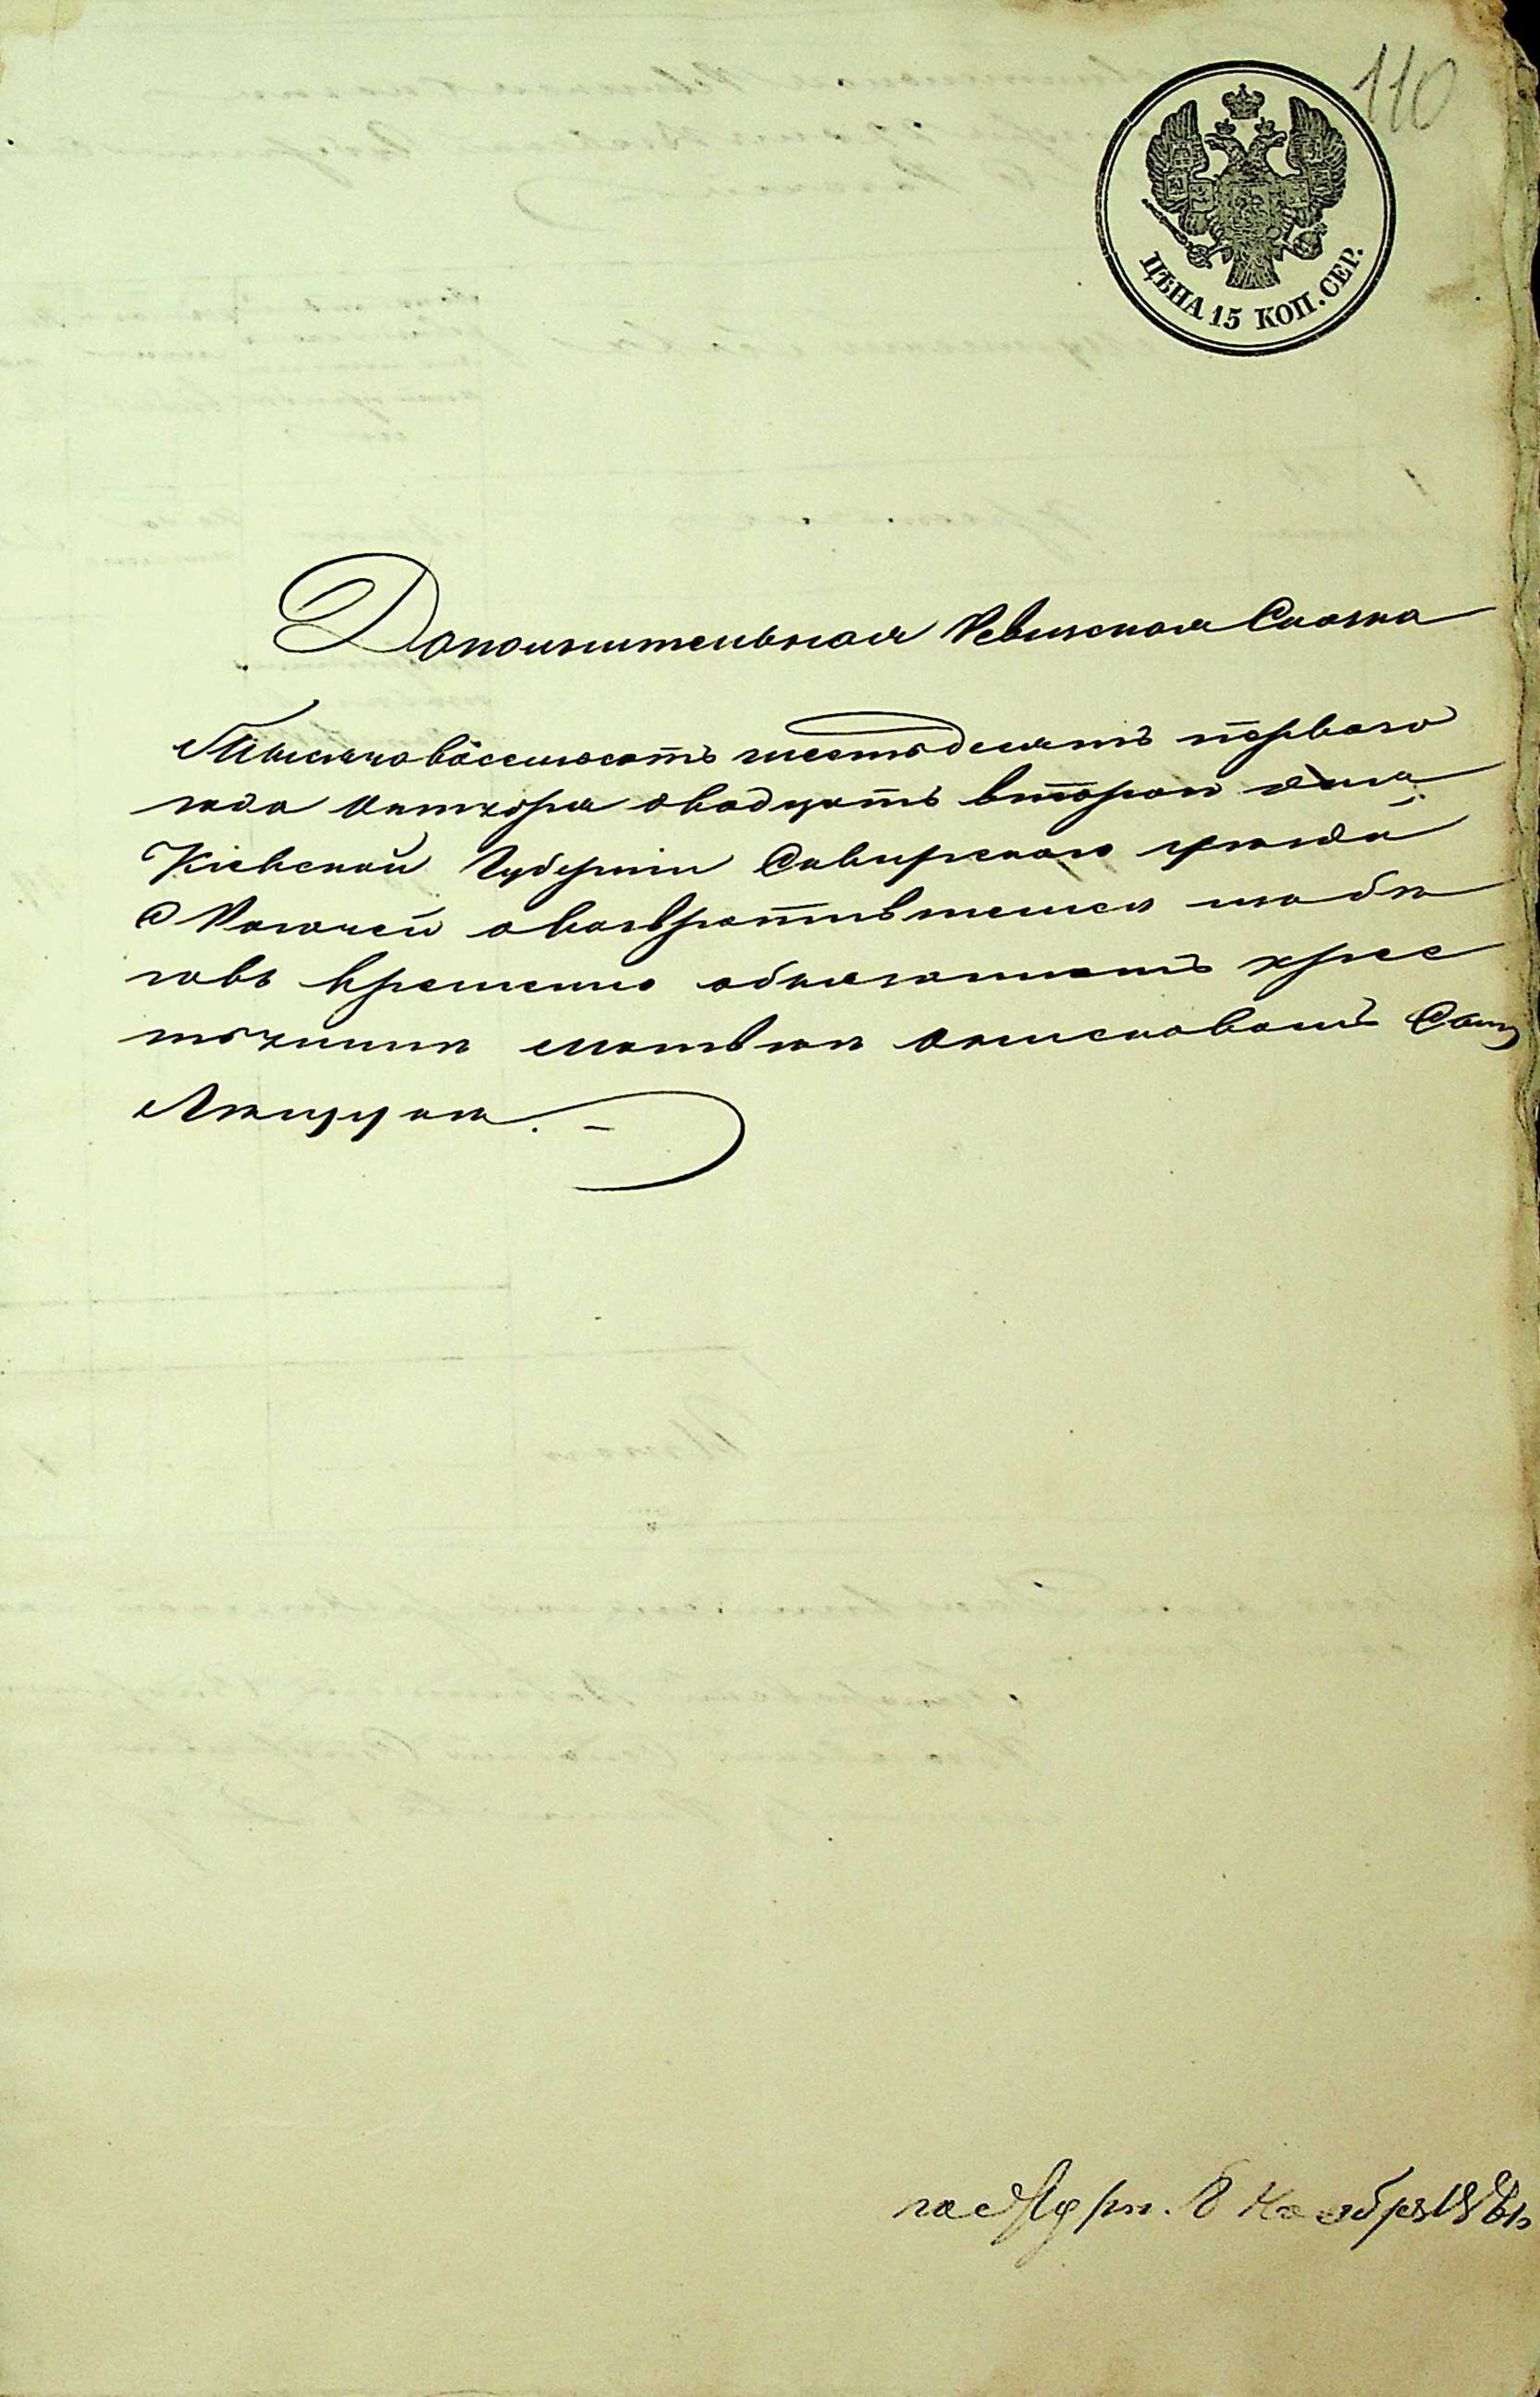 110
ЦѢНА 15 КОП. СЕР.
Дополнительная Ревизская Сказка
Тысяча восемьсотъ шестьдесятъ первого
года октября двадцать второго дня
Кіевской Губерніи Сквирского уѣзда
с Рогачей о возвратившемся изъ бѣ
говъ временно обязанномъ крес
тянинѣ Матвѣѣ
пол 8 Ноября 1861